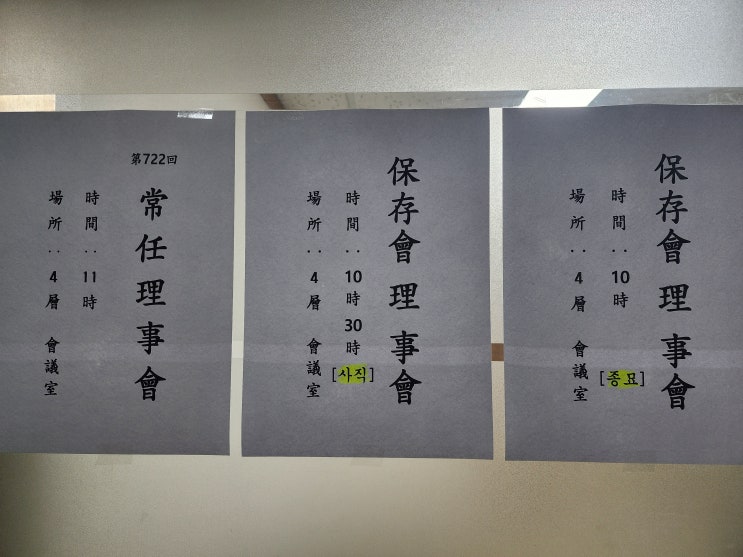 保存會 理事會
時間 : 10時 [종묘]
場所 : 4層 會議室
保存會 理事會
時間 : 10時 30時 [사직]
場所 : 4層 會議室
第722回
常任理事會
時間 : 11時
場所 : 4層 會議室